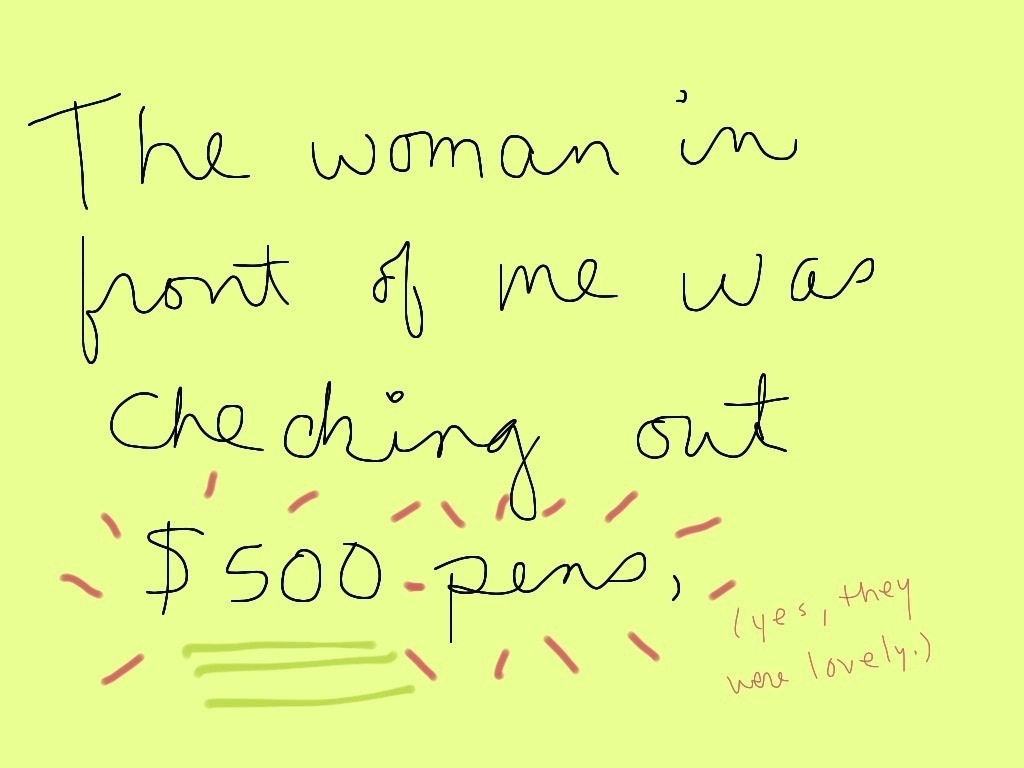 The woman in
front of me was
checking out
$500 pens,
(yes, they
were lovely.)